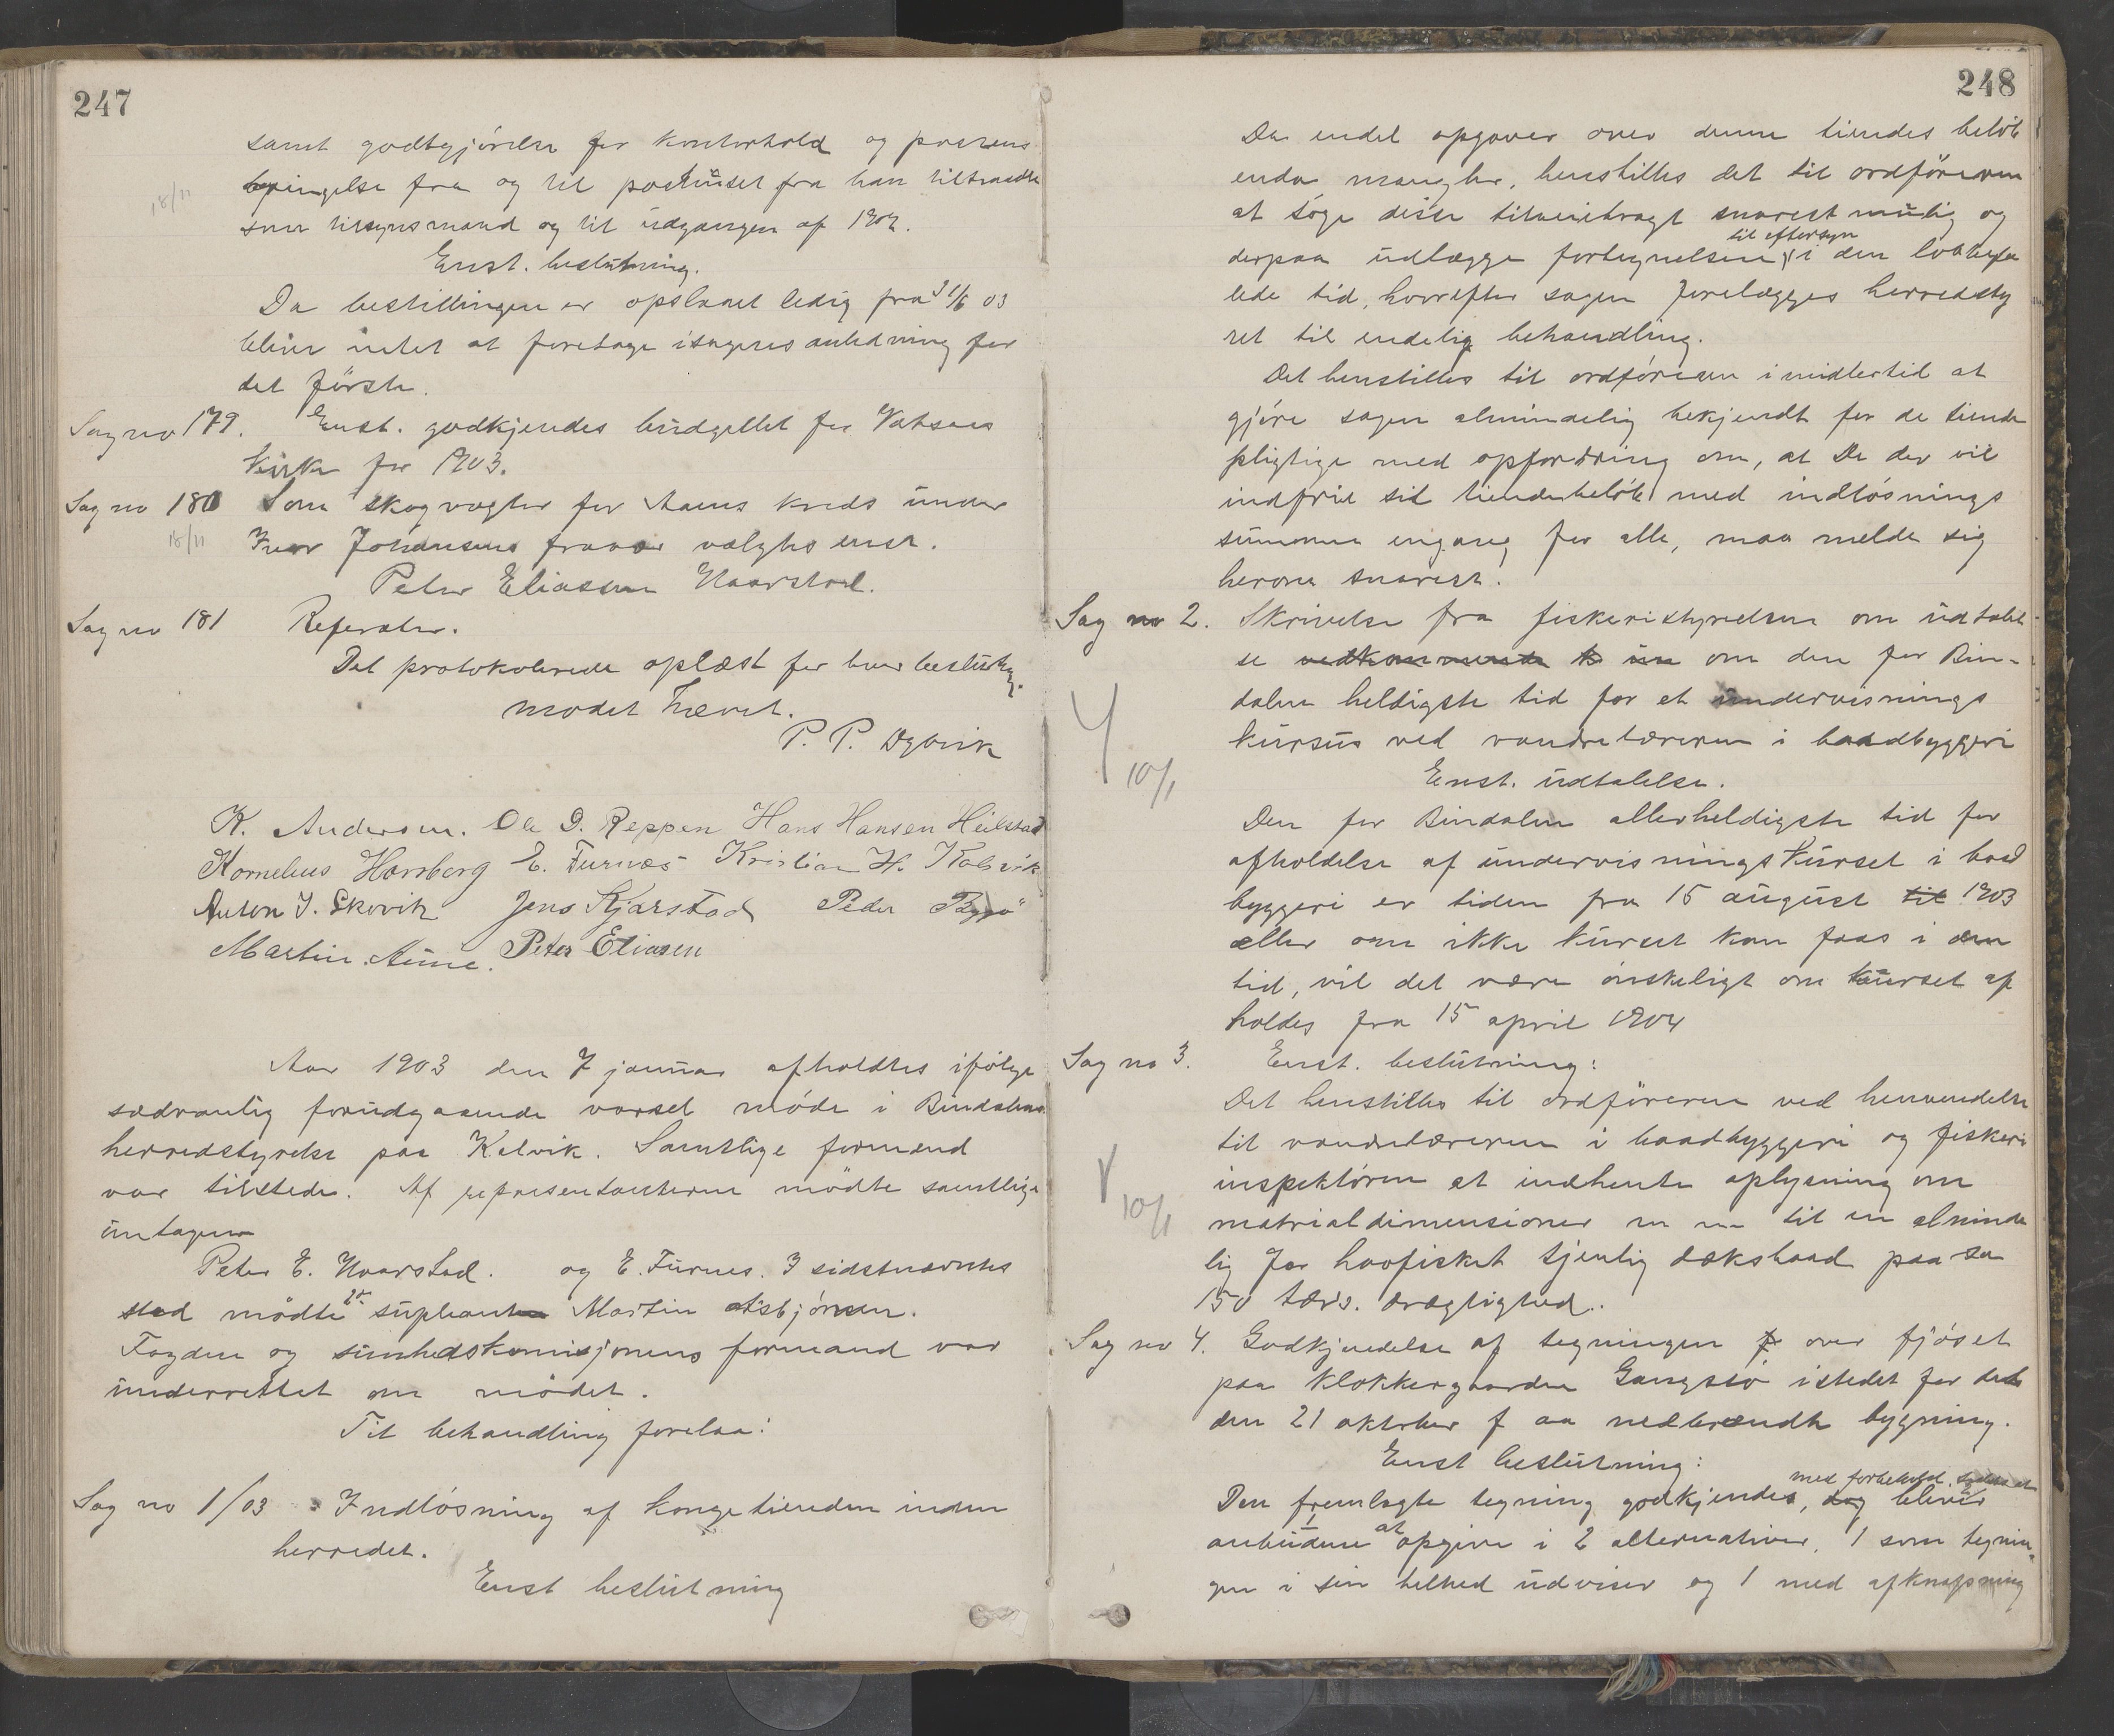 247
samt godtgjörelse for kontorhold og postens
bringelse fra og til posthuset fra han tiltraadte
18/11
som tilsynsmand og til udgangen af 1902.
Enst. beslutning.
Da bestillingen er opslaaet ledig fra 1/6 03
bliver intet at foretage i sagens anledning for
det förste.
Sag no 179. Enst. godkjendes budgettet for Vatsaas
kirke for 1903.
Sag no 180 Som skogvogter for Aaens kreds under
18/11
Iver Johansens fravær valgtes enst.
Peter Eliassen Naarstad.
Sag no 181 Referater.
Det protokolerede oplæst for hver beslutng.
mödet hævet.
P. P. Dybvik
K. Andersen. Ole D. Reppen Hans Hansen Heilstad
Kornelius Horsberg E. Furnæs Kristian H. Kalvik
Anton J. Skovik Jens Kjærstad Peder Bogsö
Martin Aune. Peter Eliasen
Aar 1903 den 7 januar afholdtes ifölge
sædvanlig forudgaaende varsel möde i Bindalens
herredstyrelse paa Kalvik. Samtlige formænd
var tilstede. Af repræsentanterne mödte samtlige
untagen
Peter E. Naarstad. og E. Furnes. I sidstnævntes
sted mödte 1ste supleant Martin Asbjörnsen.
Fogden og sundhedskomisjonens formand var
underrettet om mödet.
Til behandling forelaa:
Sag no 1/03 Indlösning af kongetienden inden
herredet.
Enst beslutning
248
Da endel opgaver over denne tiendes belöb
enda mangler, henstilles det til ordföreren
at söge disse tilveiebragt snarest mulig og
til eftersyn
derpaa udlægge fortegnelsen i den lovbefa
lede tid, hvorefter sagen forelægges herredsty
ret til endelig behandling.
Det henstilles til ordföreren imidlertid at
gjöre sagen almindelig bekjendt for de tiende
pligtige med opfordring om, at De der vil
indfrie sit tiendebelöb med indlösnings
summen engang for alle, maa melde sig
herom snarest.
Sag no 2. Skrivelse fra fiskeristyrelsen om udtalel
se vedkommende om den for Bin-
dalen heldigste tid for et undervisnings
kursus ved vandrelæreren i baadbyggeri
10/1
Enst. udtalelse.
Den for Bindalen allerheldigste tid for
afholdelse af undervisningskurset i baad
byggeri er tiden fra 15 august til 1903
eller om ikke kurset kan faaes i den
tid, vil det være önskeligt om kurset af
holdes fra 15 april 1904
Sag no 3. Enst. beslutning:
Det henstilles til ordföreren ved henvendelse
til vandrelæreren i baadbyggeri og fiskeri
inspektören at indhente oplysning om
10/1
matrialdimensioner m m til en alminde
lig for havfisket tjenlig dæksbaad paa ca
150 tdrs. drægtighed.
Sag no 4. Godkjendelse af tegningen over fjöset
paa klokkergaarden Gangsö istedet for det
den 21 oktober f aa nedbrændte bygning.
Enst beslutning:
med forbehold at
Den fremlagte tegning godkjendes, dog bliver
anbudene at opgive i 2 alternativer, 1 som tegnin-
gen i sin helhed udviser og 1 med afknapsning